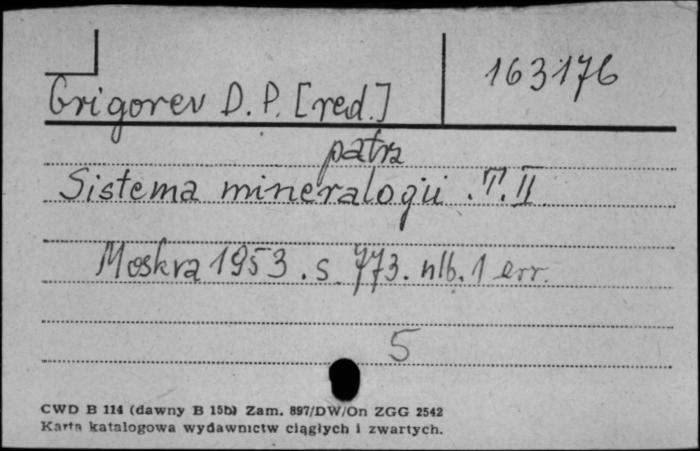 163176
Grigorev D. P. [red.]
patrz
Sistema mineralogii. T. II
Moskva 1953. s. 773. nlb. 1 err.
5
CWD B 114 (dawny B 15b) Zam. 897/DW/On ZGG 2542
Karta katalogowa wydawnictw ciągłych i zwartych.